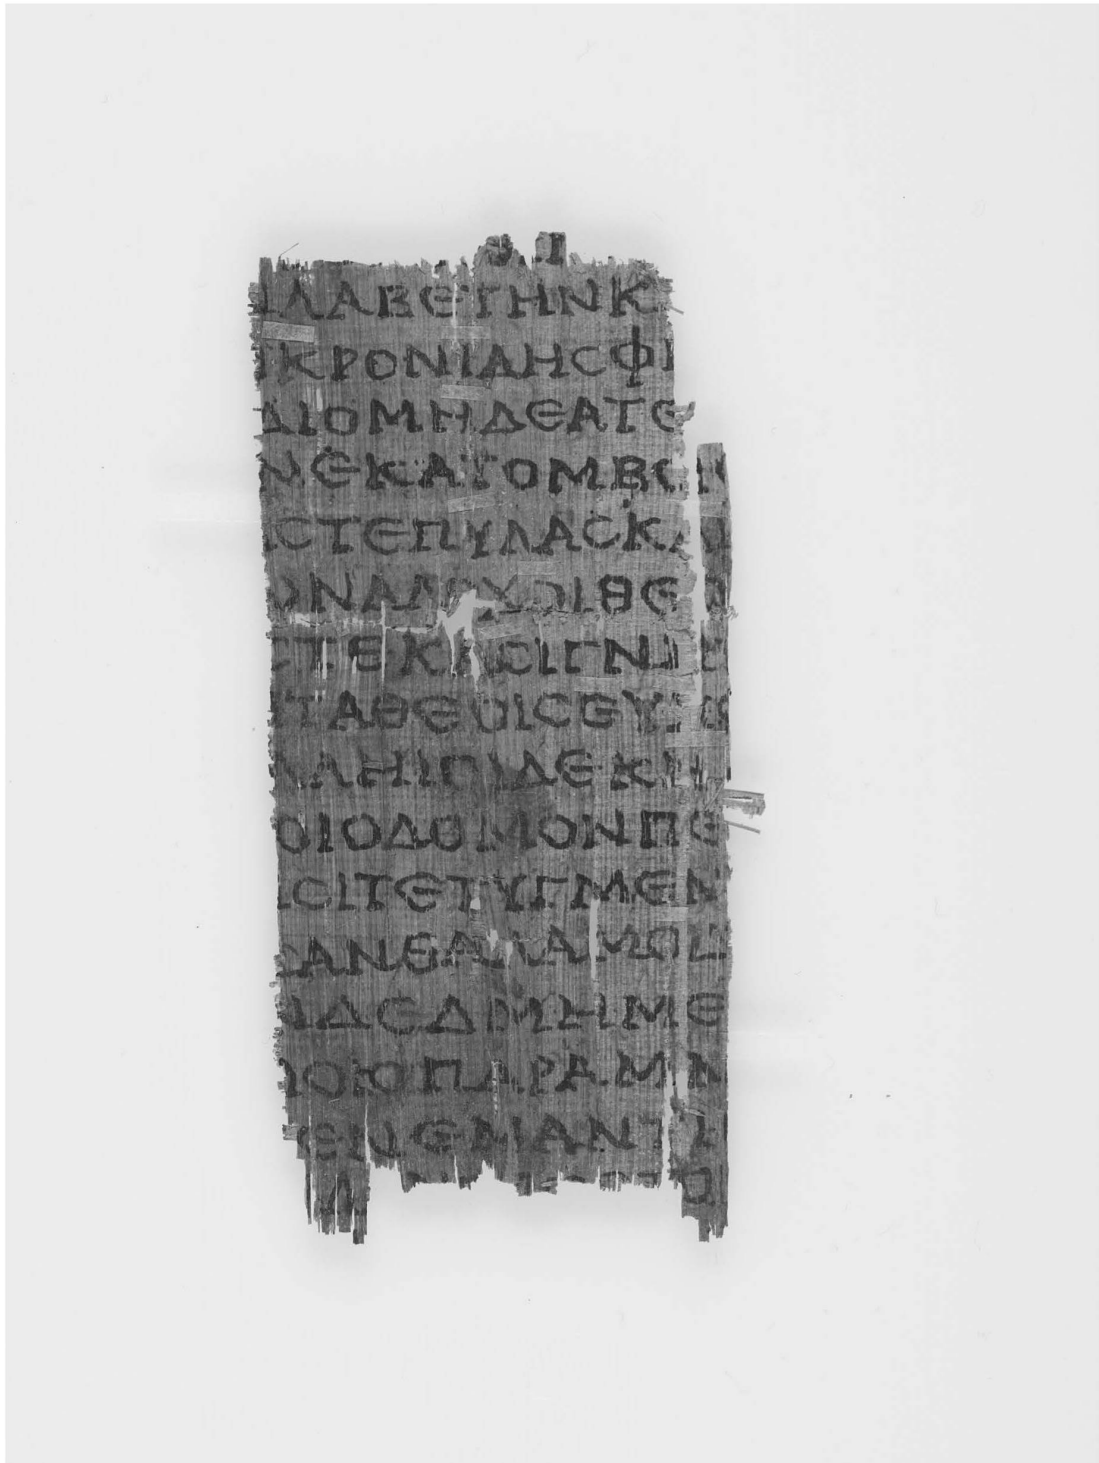 ΝΛΑΒΕΤΗΝΚ
ΙΚΡΟΝΙΔΗϹΦΡ
ΔΙΟΜΗΔΕΑΤΕ
ΝΕΚΑΤΟΜΒΟΙ
ΑϹΤΕΠΥΛΑϹΚΑΙ
ΩΝΑΛΟΧΟΙΘΕΟ
ϹΤΕΚΑϹΙΓΝΗΤ
ΙΤΑΘΕΟΙϹΕΥΧΕ
ΛΛΗΙϹΙΔΕΚΗ
ΟΙΟΔΟΜΟΝΠΕ
ΙϹΙΤΕΤΥΓΜΕΝ
ϹΑΝΘΑΛΑΜΟΙ
ΝΔΕΔΜΗΜΕ
ΜΟΙΟΠΑΡΑΜΝ
ΕΝΕΝΑΝΤΙ